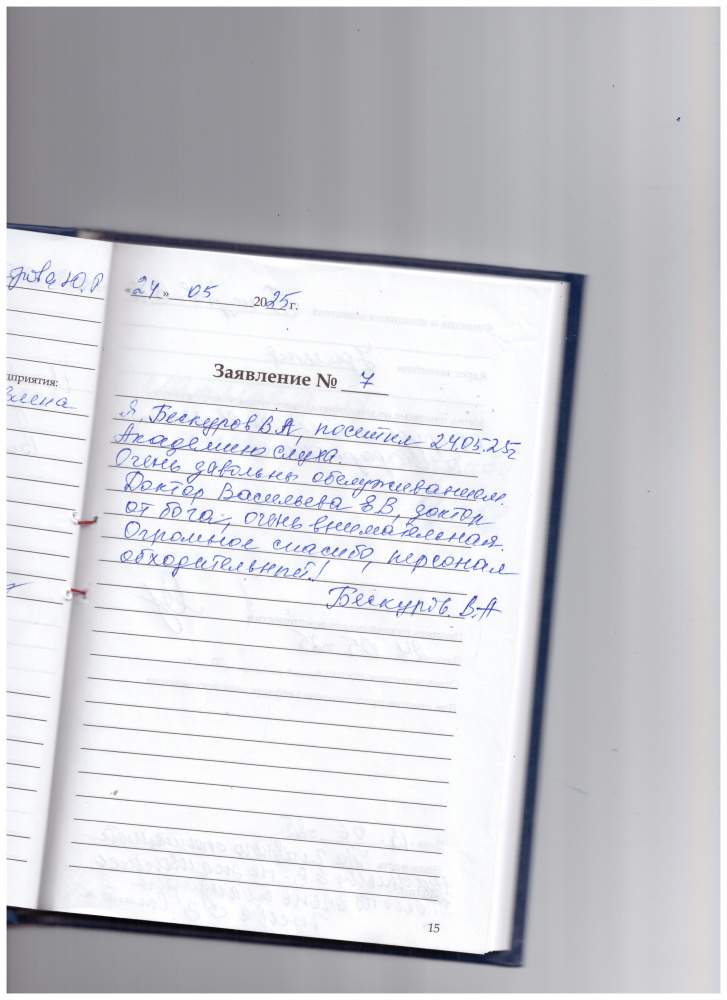 Ю.Р
«24» 05 2025 г.
Заявление № 7
дприятия:
Я Бескуров В.А, посетил 24.05.25г
Академию слуха.
Очень давольны обслуживанием.
Доктор Васильева В.В, доктор
от бога, очень внимательная.
Огромное спасибо, персонал
обходительный!
Бескуров В.А
15